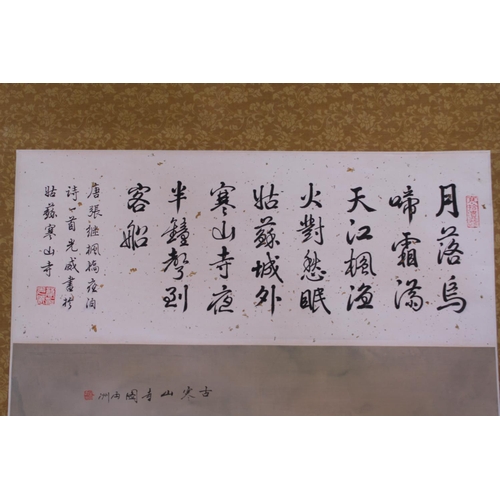 月落烏
啼霜滿
天江楓漁
火對愁眠
姑蘇城外
寒山寺夜
半鐘聲到
客船
唐張继楓橋夜泊
诗一首光威書於
姑蘇寒山寺
古寒山寺圖